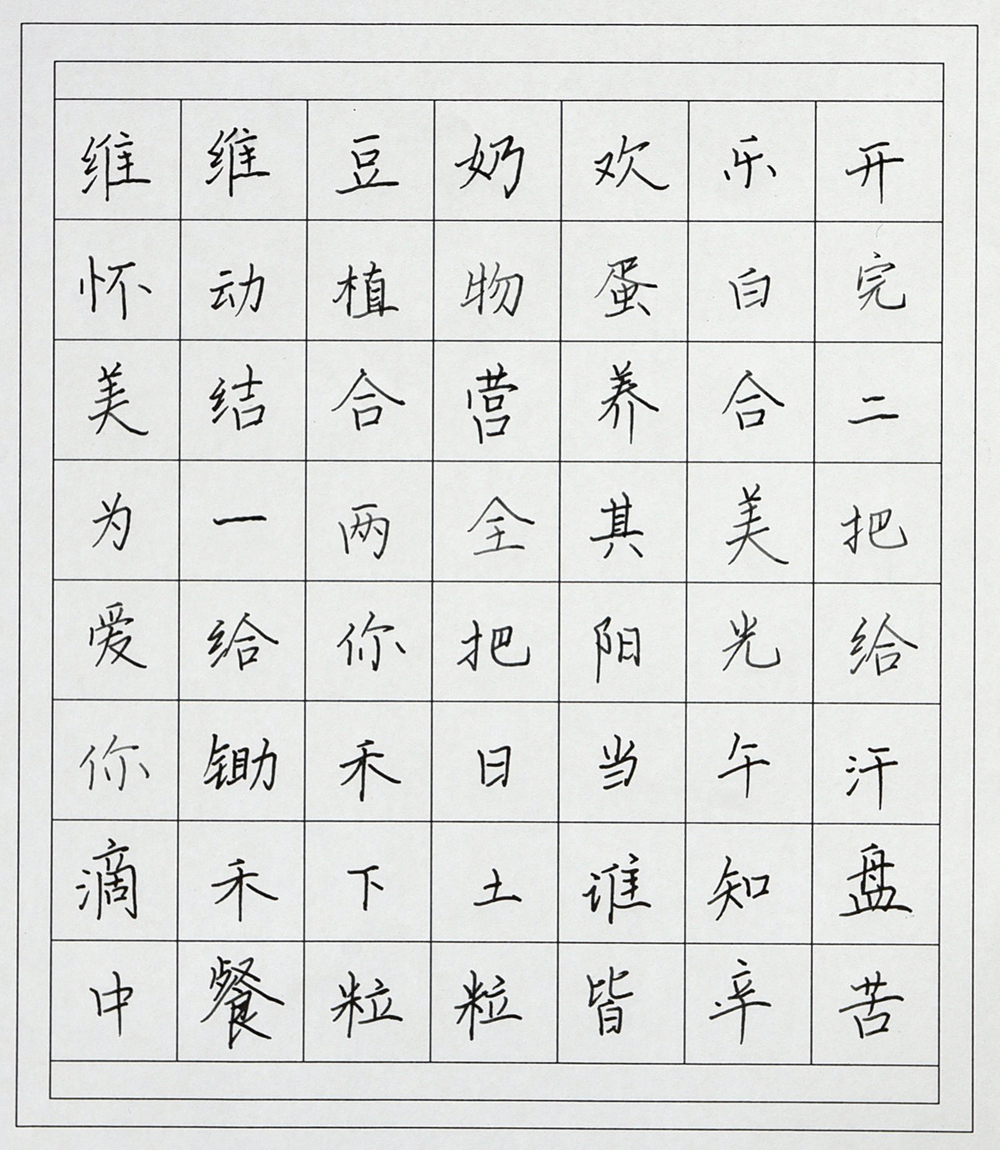 维维豆奶欢乐开
怀动植物蛋白完
美结合营养合二
为一两全其美把
爱给你把阳光给
你锄禾日当午汗
滴禾下土谁知盘
中餐粒粒皆辛苦